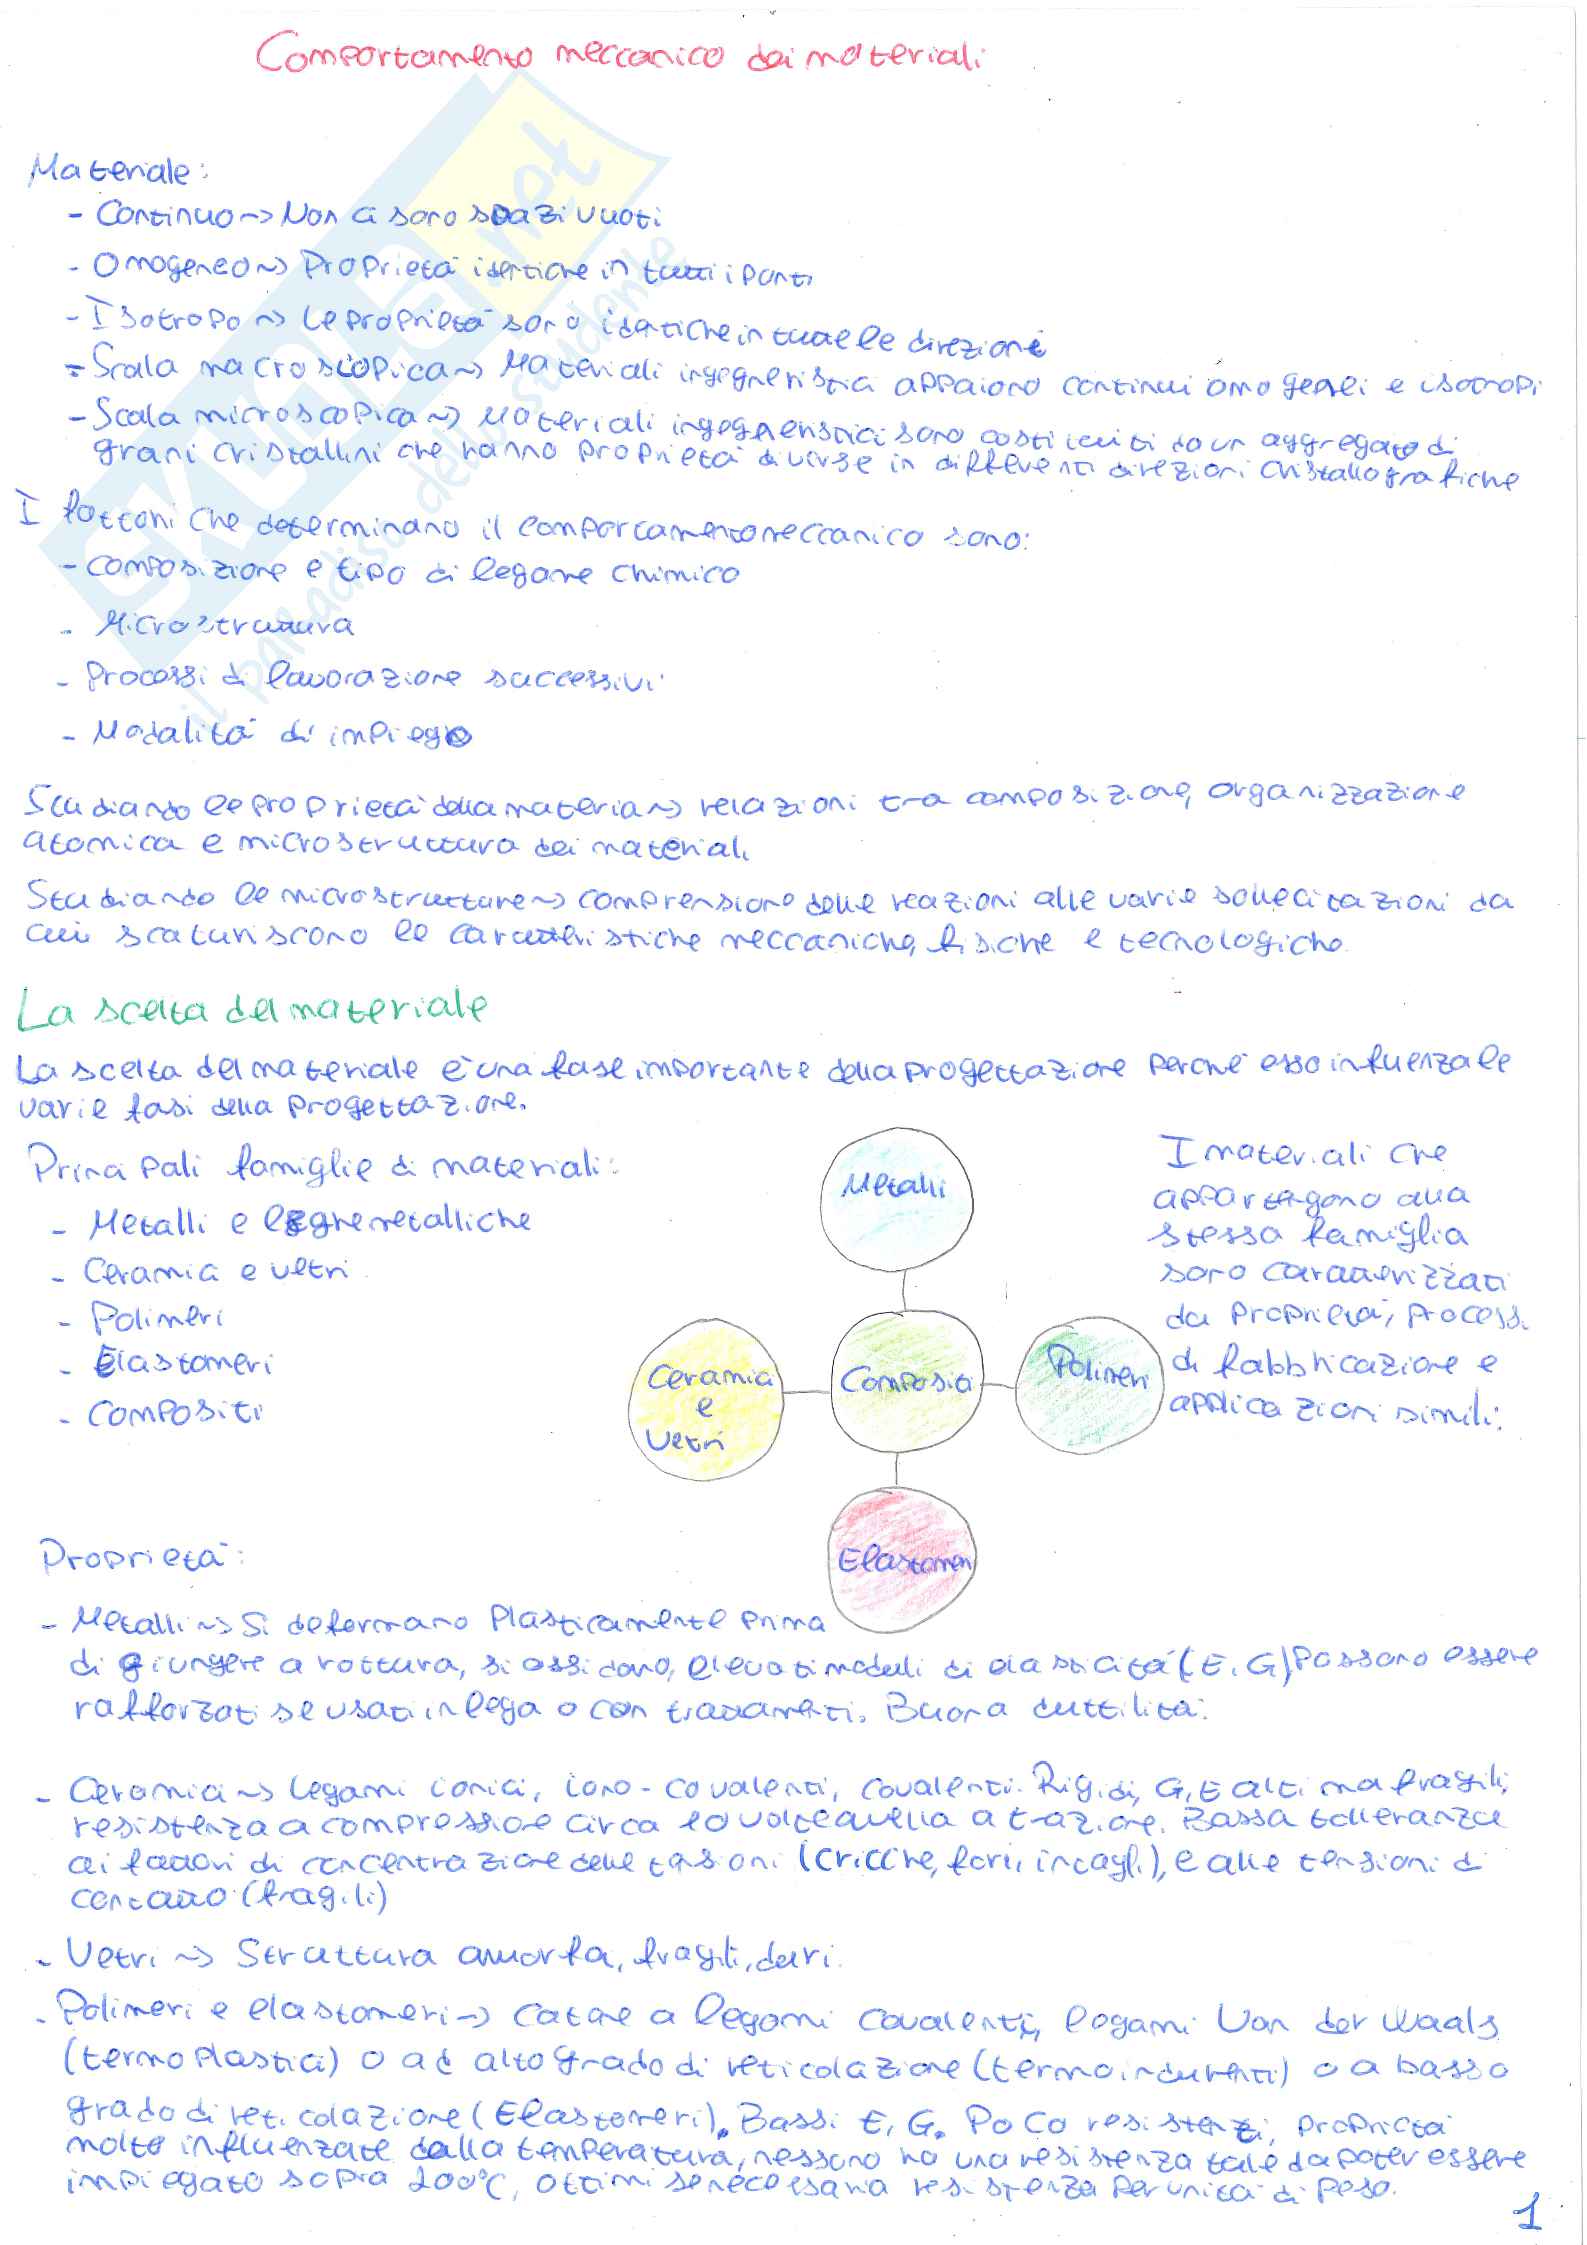 Comportamento meccanico dei materiali
Materiale:
- Continuo ~> Non ci sono spazi vuoti
- Omogeneo ~> Proprietà identiche in tutti i punti
- Isotropo ~> Le proprietà sono identiche in tutte le direzioni
- Scala macroscopica ~> Materiali ingegneristici appaiono continui omogenei e isotropi
- Scala microscopica ~> Materiali ingegneristici sono costituiti da un aggregato di
grani cristallini che hanno proprietà diverse in differenti direzioni cristallografiche
I fattori che determinano il comportamento meccanico sono:
- Composizione e tipo di legame chimico
- Microstruttura
- Processi di lavorazione successivi
- Modalità di impiego
Studiando le proprietà della materia ~> relazioni tra composizione, organizzazione
atomica e microstruttura dei materiali
Studiando le microstrutture ~> comprensione delle reazioni alle varie sollecitazioni da
cui scaturiscono le caratteristiche meccaniche, fisiche e tecnologiche
La scelta del materiale
La scelta del materiale è una fase importante della progettazione perché esso influenza le
varie fasi della progettazione.
Principali famiglie di materiali:
- Metalli e leghe metalliche
- Ceramici e vetri
- Polimeri
- Elastomeri
- Compositi
Metalli
Ceramici
e
Vetri
Compositi
Polimeri
Elastomeri
I materiali che
appartengono alla
stessa famiglia
sono caratterizzati
da proprietà, processi
di fabbricazione e
applicazioni simili.
Proprietà:
- Metalli ~> Si deformano plasticamente prima
di giungere a rottura, si ossidano, elevati moduli di elasticità (E, G) Possono essere
rafforzati se usati in lega o con trattamenti. Buona duttilità.
- Ceramici ~> Legami ionici, iono-covalenti, covalenti. Rigidi, G, E alti ma fragili,
resistenza a compressione circa 10 volte quella a trazione. Bassa tolleranza
ai fattori di concentrazione delle tensioni (cricche, fori, intagli), e alle tensioni di
contatto (fragili)
- Vetri ~> Struttura amorfa, fragili, duri.
- Polimeri e elastomeri ~> Catene a legami covalenti, legami Van der Waals
(termoplastici) o ad alto grado di reticolazione (termoindurenti) o a basso
grado di reticolazione (Elastomeri). Bassi E, G. Poco resistenti, proprietà
molto influenzate dalla temperatura, nessuno ha una resistenza tale da poter essere
impiegato sopra 200°C, ottimi se necessaria resistenza per unità di peso.
1
SKUOLA.net
il paradiso dello studente